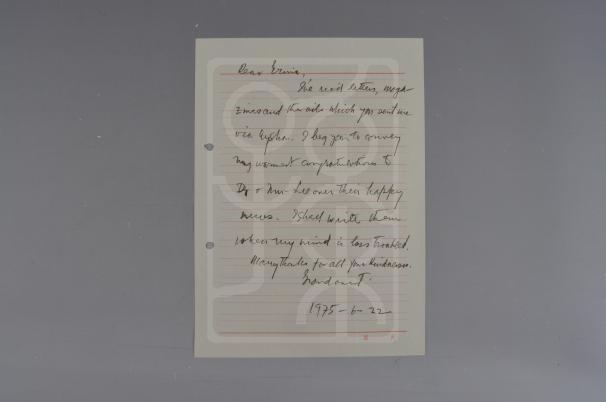 Dear Ermie,
I've rec'd letters, maga-
zines and the milk which you sent me
via Eipha. I beg you to convey
my warmest congratulations to
Dr + Mrs Lee over their happy
news. I shall write them
when my mind is less troubled.
Many thanks for all your kindnesses.
Grand aunt.
1975-6-22